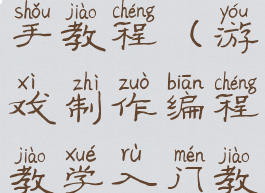 shǒu jiào chéng yóu
手教程（游
xì zhì zuò biān chéng
戏制作编程
jiào xué rù mén jiào
教学入门教